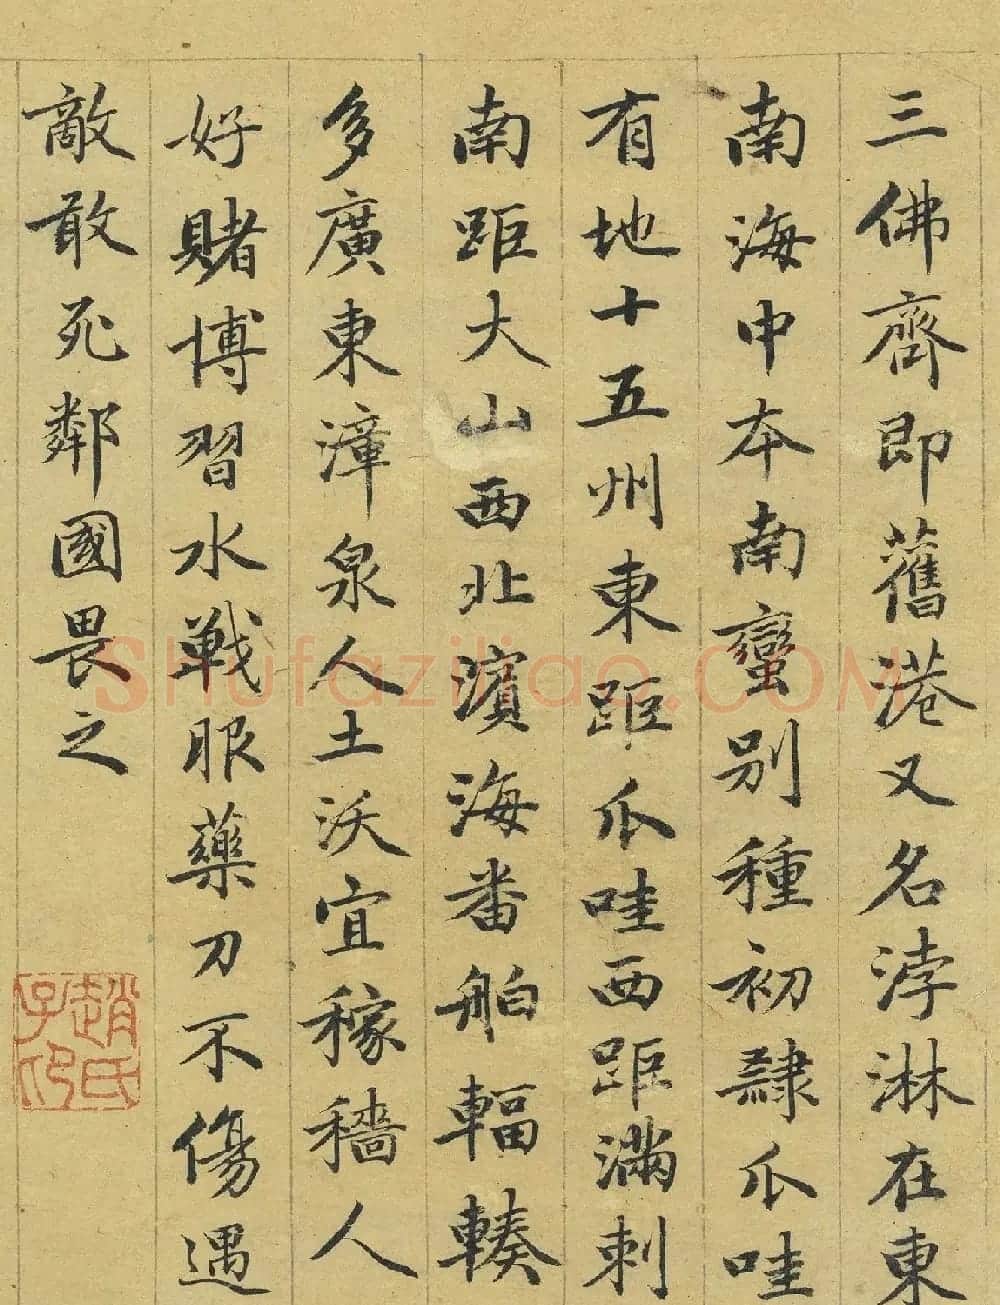 三佛齊即舊港又名浡淋在東
南海中本南蠻別種初隸爪哇
有地十五州東距爪哇西距滿剌
南距大山西北濱海番舶輻輳
多廣東漳泉人土沃宜稼穡人
好賭博習水戰服藥刀不傷遇
敵敢死鄰國畏之
趙氏子印
Shufaziliao.COM